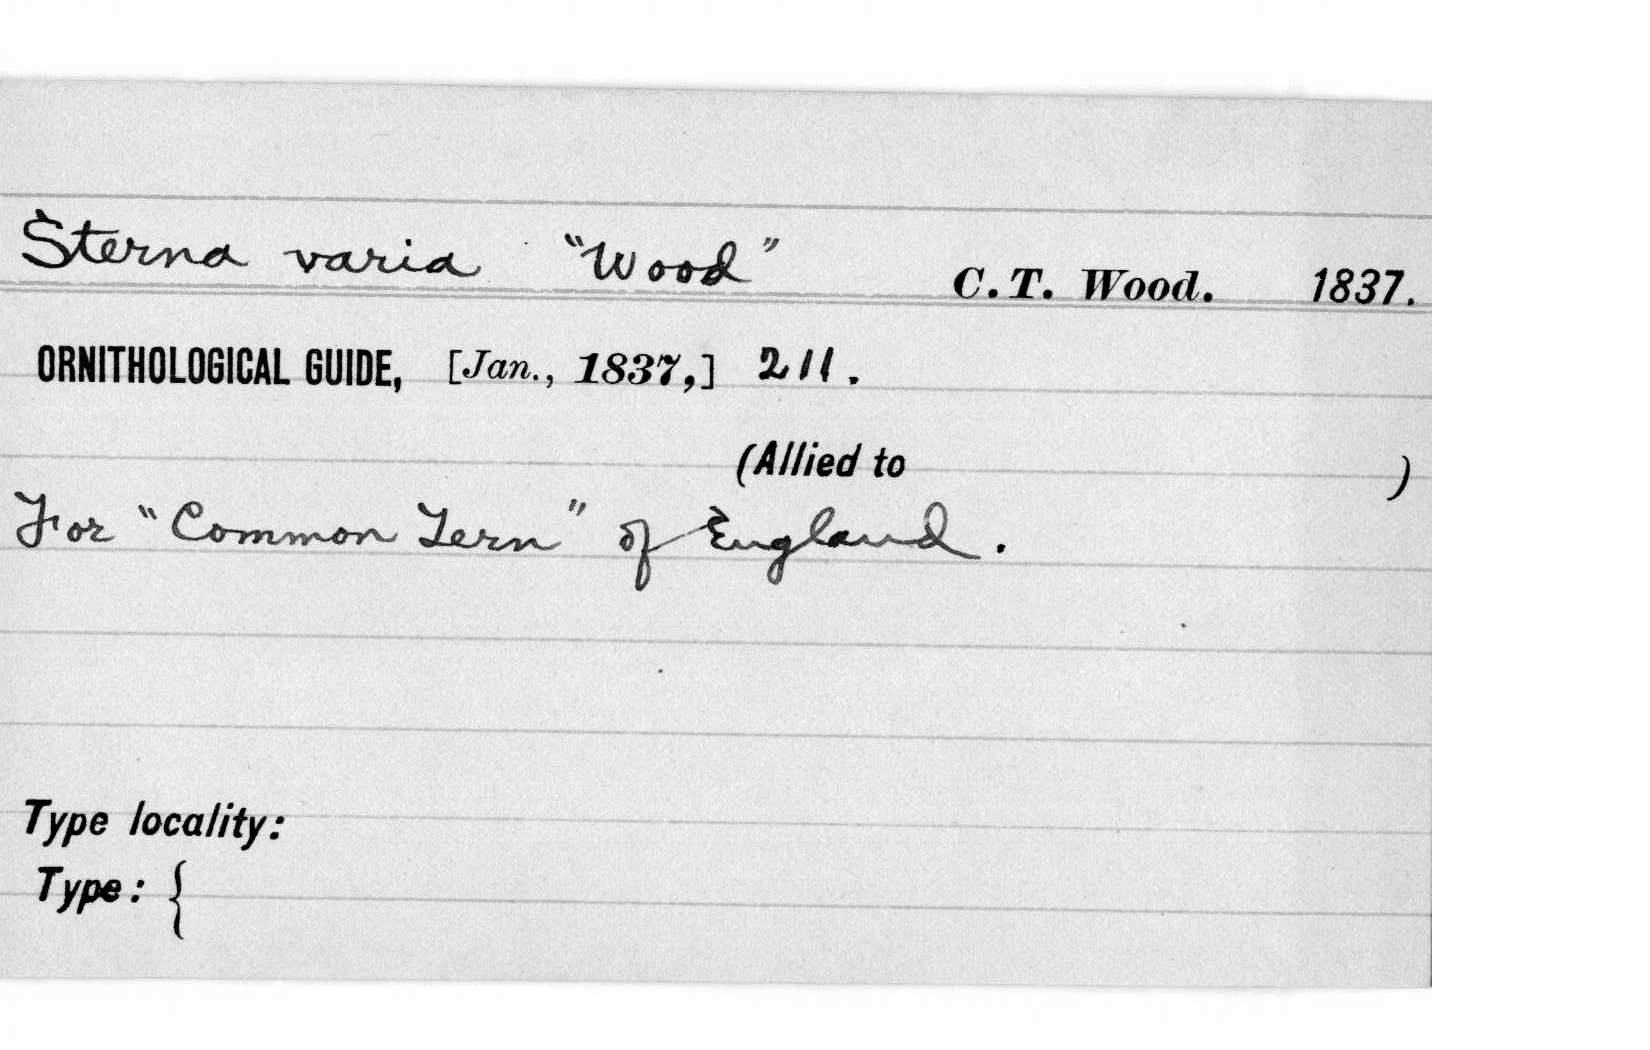 Sterna varia "Wood" C. T. Wood. 1837.
ORNITHOLOGICAL GUIDE, [Jan., 1837,] 211.
(Allied to )
For "Common Tern" of England.
Type locality:
Type: {